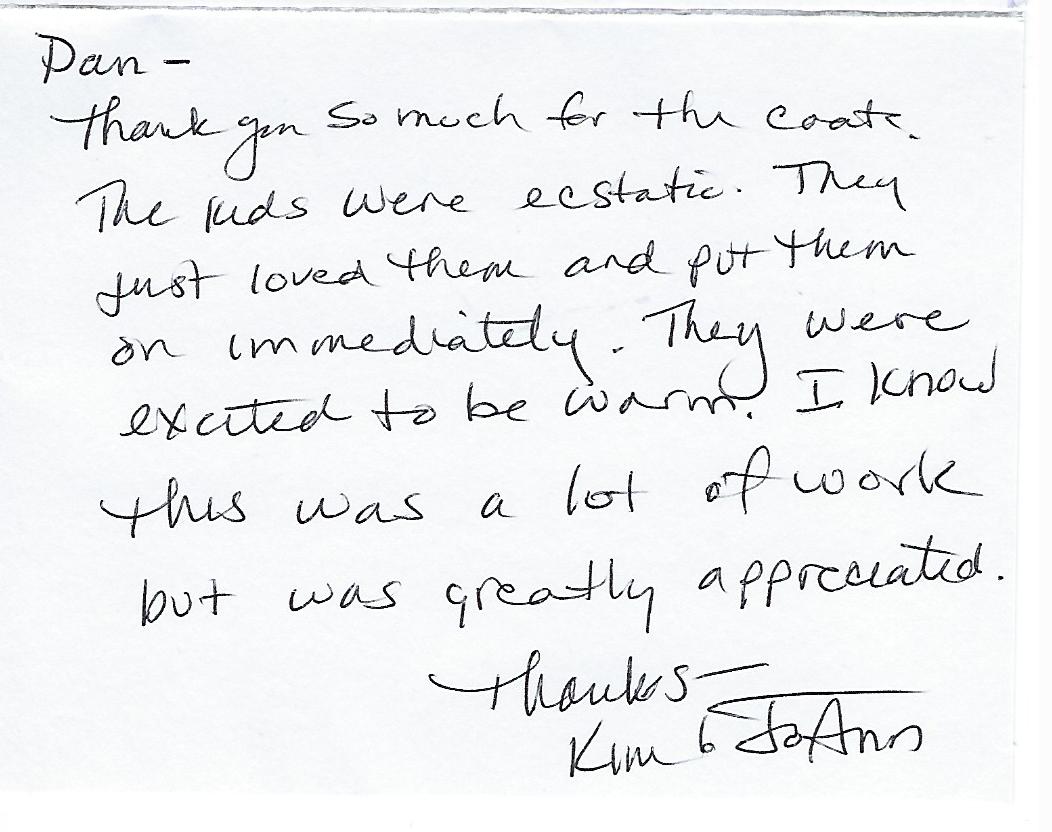 Dan -
Thank you so much for the coats.
The kids were ecstatic. They
just loved them and put them
on immediately. They were
excited to be warm. I know
this was a lot of work
but was greatly appreciated.
Thanks -
Kim & JoAnn